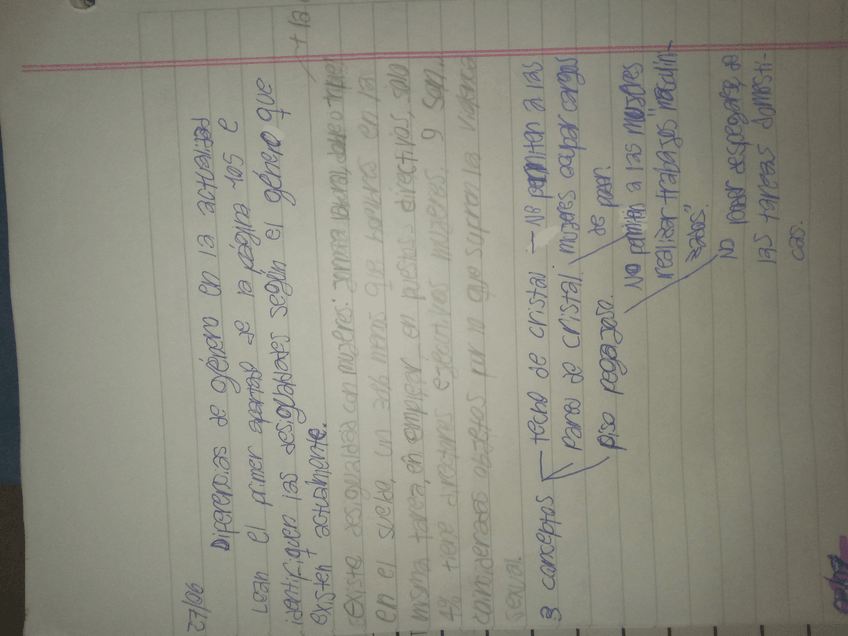 27/06
Diferencias de género en la actualidad
Lean el primer apartado de la página 105 e
identifiquen las desigualdades según el género que
existen actualmente.
existe desigualdad con mujeres: jornada laboral
en el sueldo, un 20% menos que hombres en la
misma tarea, en emplear en puestos directivos, solo
4% tiene directores ejecutivos mujeres, y son
consideradas objetos por lo que sufren la violencia
sexual.
3 conceptos
techo de cristal - No permiten a las
mujeres ocupar cargos
de poder.
pared de cristal
No permiten a las mujeres
realizar trabajos "masculin-
izados".
piso pegajoso.
No poder despegarse de
las tareas domesti-
cas.